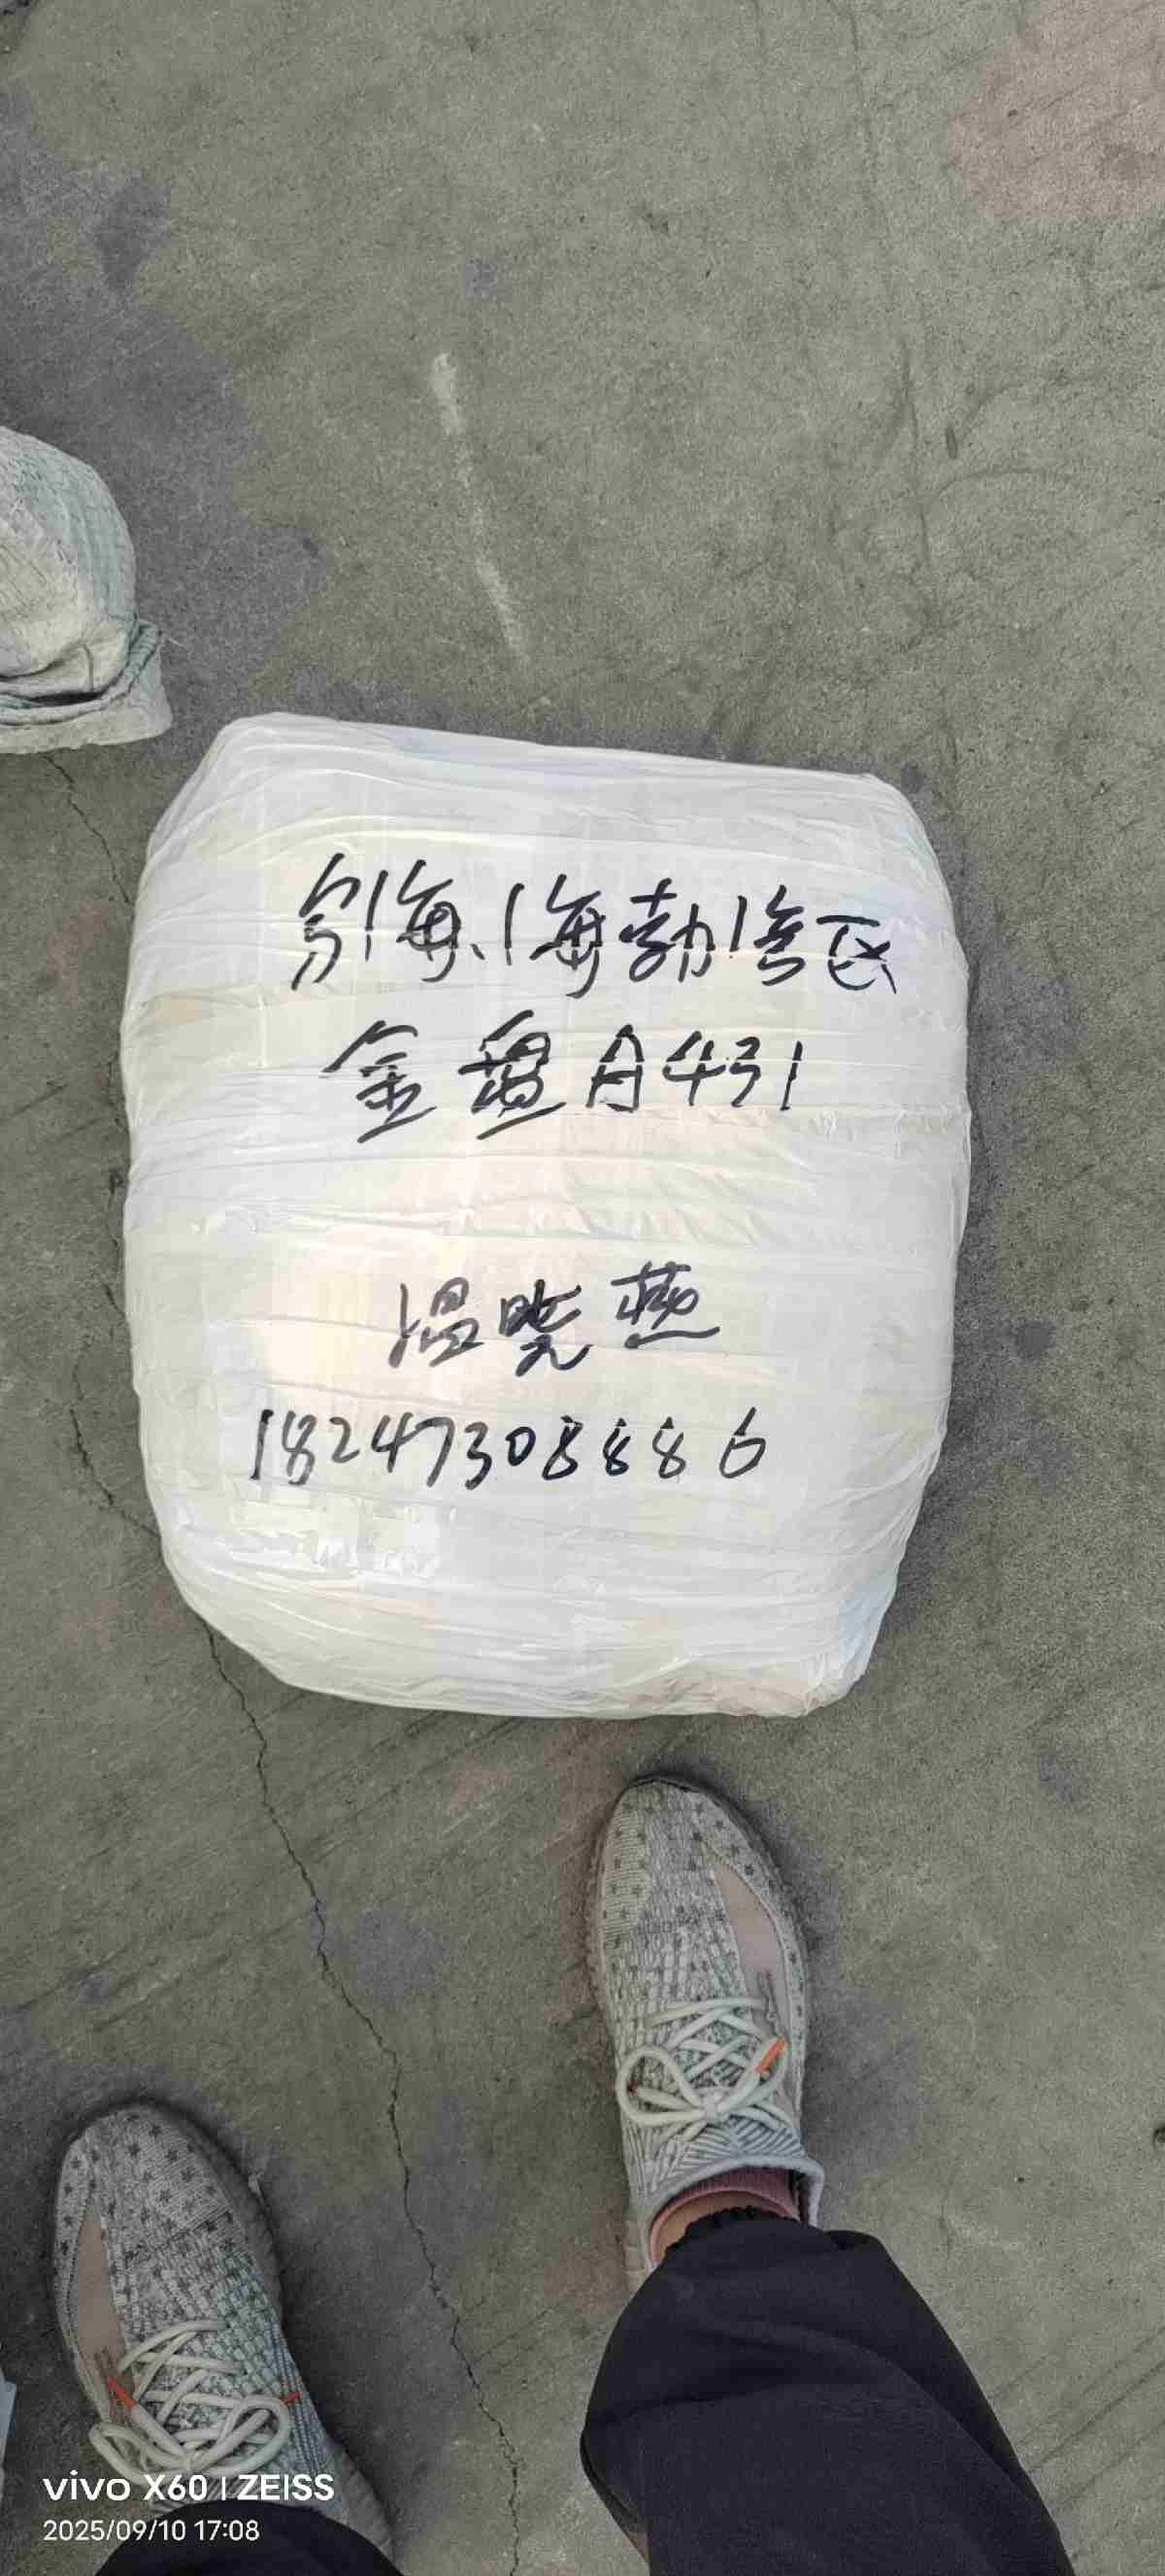 乌海、海勃湾区
金盘A431
温晓燕
18247308886
vivo X60 | ZEISS
2025/09/10 17:08